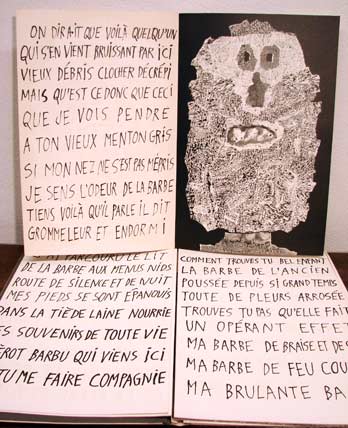 ON DIRAIT QUE VOILÀ QUELQU'UN
QUI S'EN VIENT BRUISSANT PAR ICI
VIEUX DÉBRIS CLOCHER DÉCRÉPI
MAIS QU'EST CE DONC QUE CECI
QUE JE VOIS PENDRE
A TON VIEUX MENTON GRIS
SI MON NEZ NE S'EST PAS MÉPRIS
JE SENS L'ODEUR DE LA BARBE
TIENS VOILÀ QU'IL PARLE IL DIT
GROMMELEUR ET ENDORMI
PARCOURU LE LIT
DE LA BARBE AUX MENUS NIDS
ROUTE DE SILENCE ET DE NUIT
MES PIEDS SE SONT ÉPANOUIS
DANS LA TIÈDE LAINE NOURRIE
ES SOUVENIRS DE TOUTE VIE
ÉROT BARBU QUI VIENS ICI
TU ME FAIRE COMPAGNIE
COMMENT TROUVES TU BEL ENFANT
LA BARBE DE L'ANCIEN
POUSSÉE DEPUIS SI GRAND TEMPS
TOUTE DE PLEURS ARROSÉE
TROUVES TU PAS QU'ELLE FAIT
UN OPÉRANT EFFET
MA BARBE DE BRAISE ET DE
MA BARBE DE FEU COU
MA BRULANTE BA